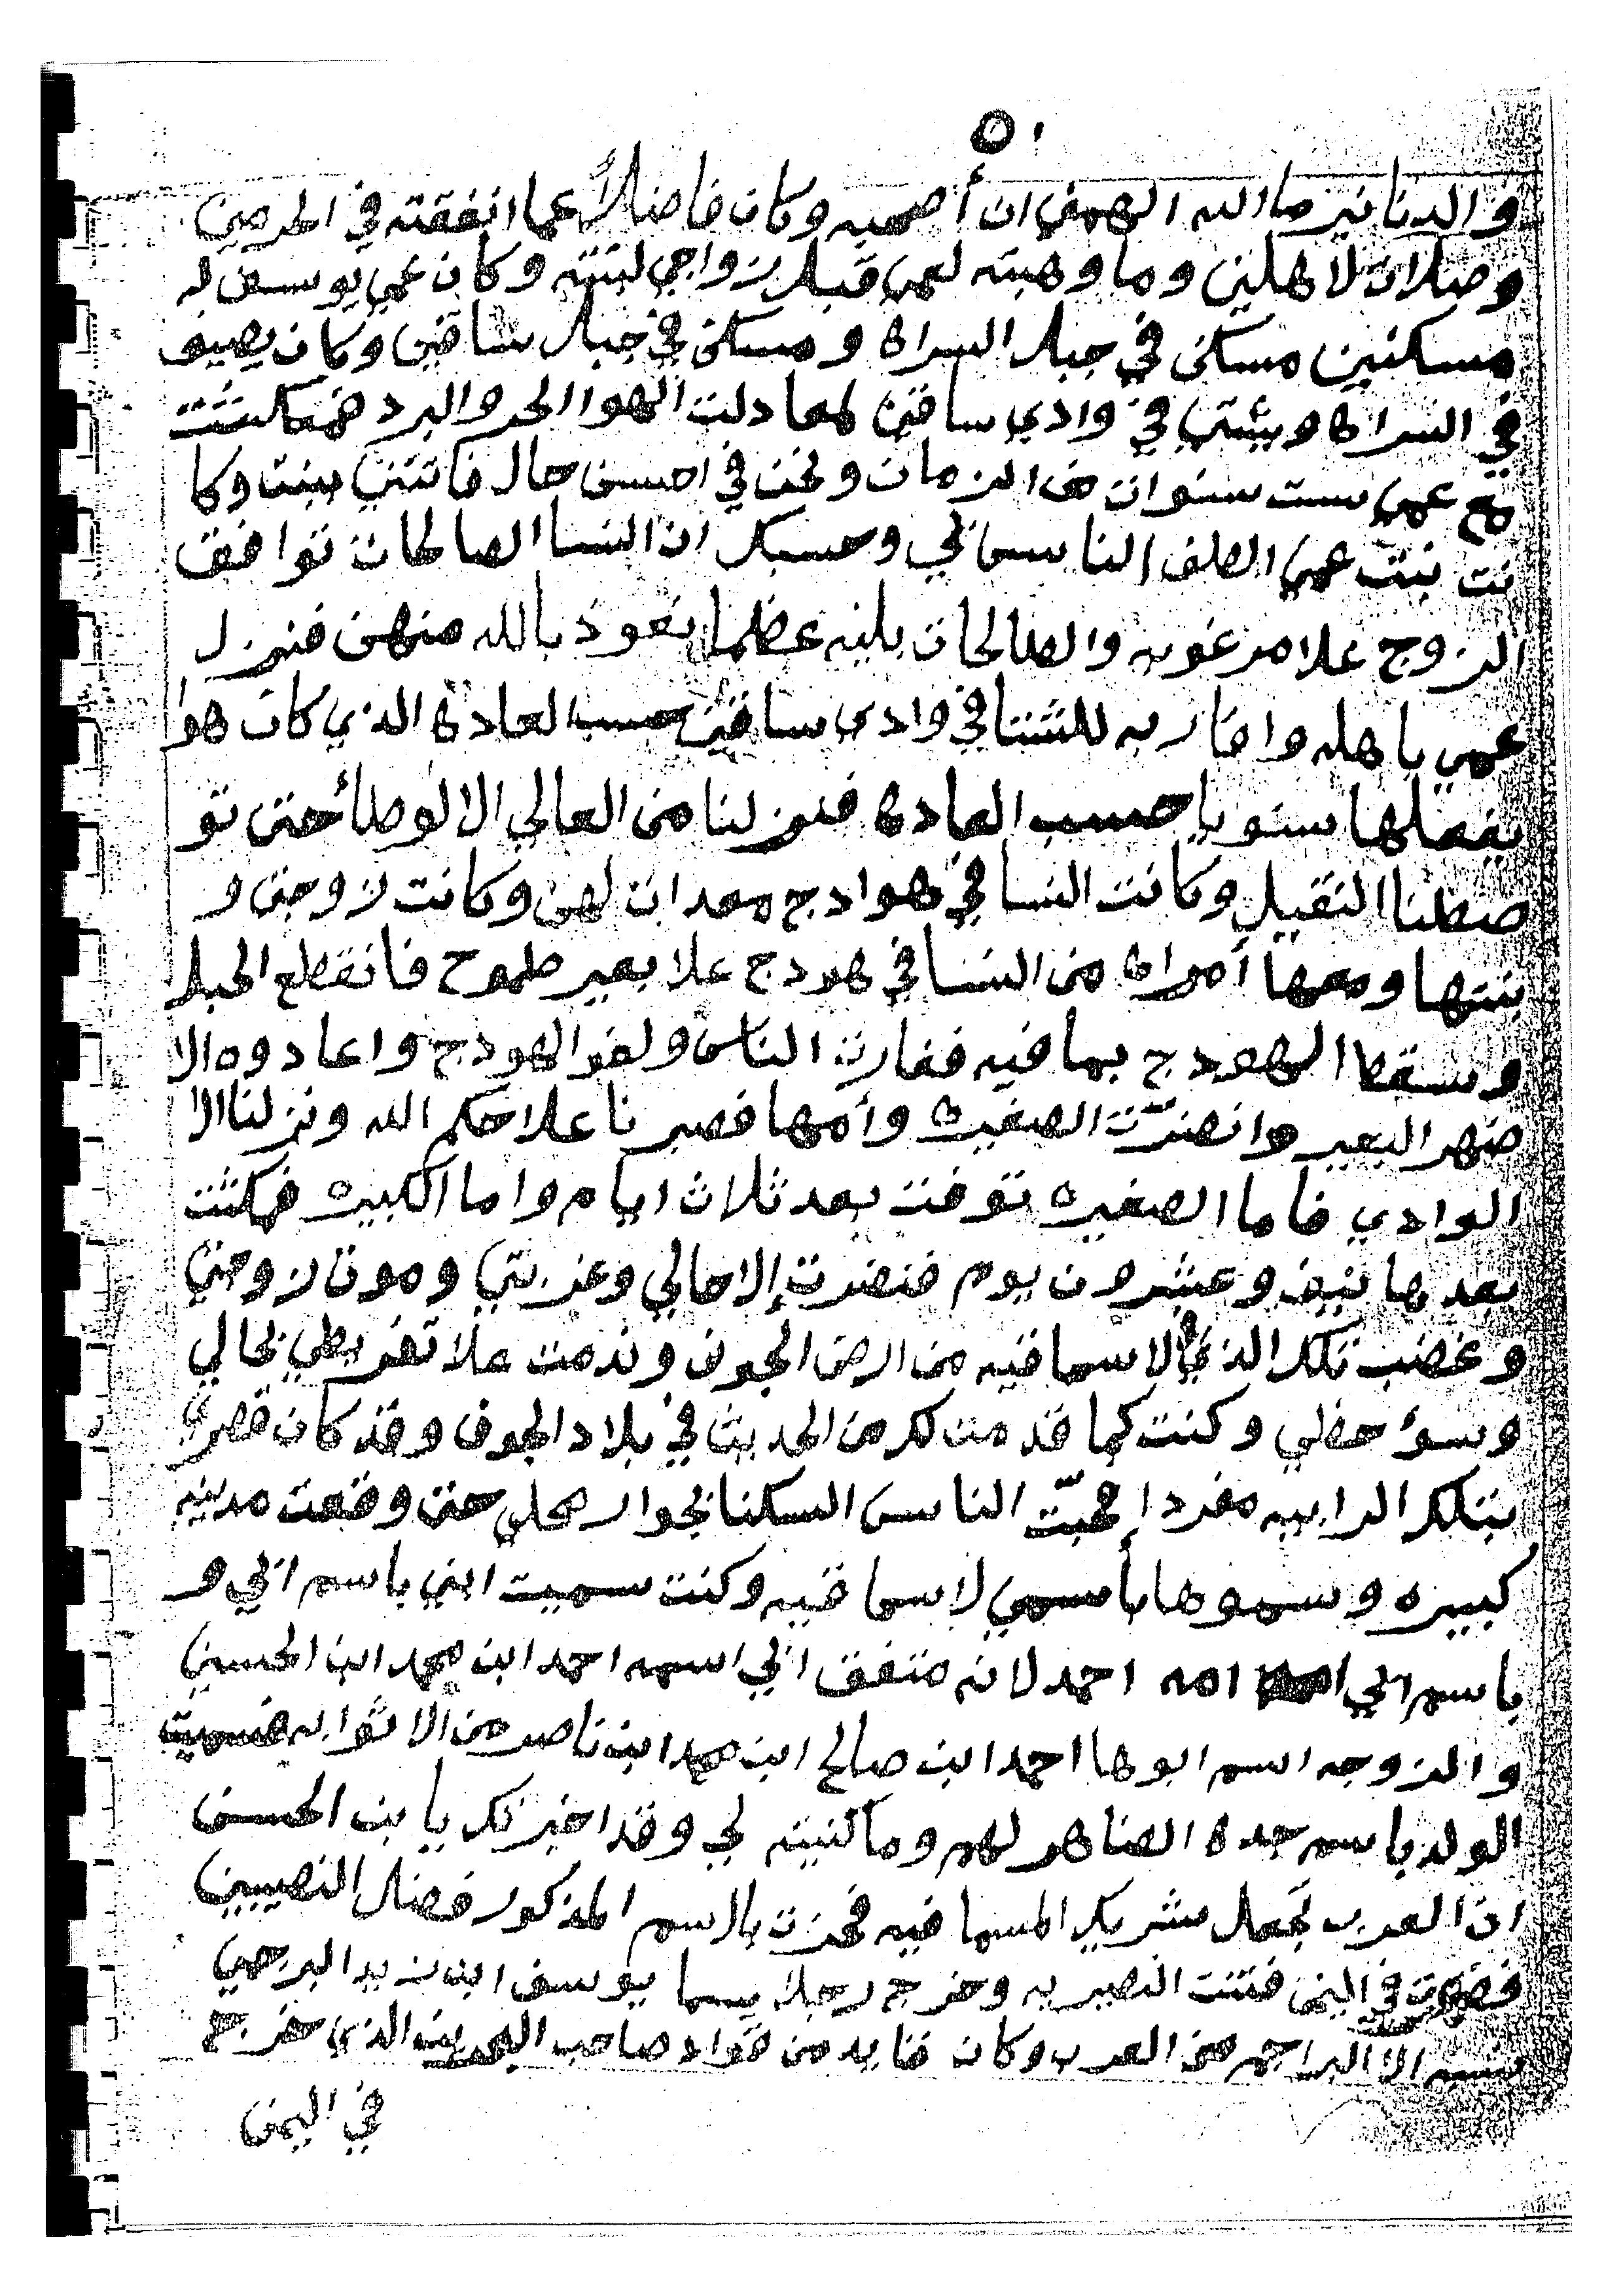 ٥٠
والدنانير ما الله الهمني ان أصحبه وكان فاضلاً عما انفقته في الحرمين
وصلات لاهلين وما وهبته لعمي قبل زواجي لبنته وكان عمي يوسف له
مسكنين مسكن في جبل السراه ومسكن في جبل ساقين وكان يصيف
في السراه ويشتي في وادي ساقين لمعادلت الهوا الحر والبرد فمكثت
مع عمي ست سنوات من الزمان ونحن في احسن حال فاتتني ببنت وكا
نت بنت عمي الطف الناس بي وحسبك ان النسا الصالحات توافق
الزوج علا مرغوبه والطالحات بليه عظما نعوذ بالله منهن فنزل
عمي باهله واقاربه للشتا في وادي ساقين حسب العاده الذي كان هوا
يفعلها سنويا حسب العاده فنوزلنا من العالي الا الوطا حتى تو
صطنا النقيل وكانت النسا في هوادج معدات لهن وكانت زوجتي و
بنتها ومعها أمراه من النسا في هودج علا بعير طموح فانقطع الحبل
وسقط الهودج بما فيه فغارت الناس ولفو الهودج واعادوه الا
ضهر البعير وانضرّت الصغيره وأمها فصبرنا علا حكم الله ونزلنا الا
الوادي فاما الصغيره توفت بعد ثلاث ايام واما الكبيره فمكثت
بعدها نيف وعشرون يوم فنضرت إلا حالي وغربتي وموت زوجتي
وغضب تلك الذي لاسما فيه من ارض الجوف وندمت علا تفريطي بحالي
وسوء حظي وكنت كما قدمت لك من الحديث في بلاد الجوف وقد كان قصري
بتلك الرابيه مفردا فحبّت الناس السكنا بجوار محلي حتى وقعت مدينه
كبيره وسموها بأسمي لاسما فيه وكنت سميت ابني باسم ابي و
باسم ابي امه احمد لانه متفق ابي اسمه احمد ابن محمد ابن الحسين
والزوجه اسم ابوها احمد ابن صالح ابن محمد ابن ناصر من الا فسميت
الولد باسم جده الضاهر لهم وما كنيته لي وقد اخبرتك يا بن الحسن
ان العرب تجعل شريك المسما فيه فحزت بالاسم المذكور فضل النصيبين
في اليمن فتنت النصيريه وخرج رجلا يسما يوسف ابن زيد البرجمي
نسبه الا البراجم من العرب وكان قايد من قواد صاحب الذي خرج
في اليمن